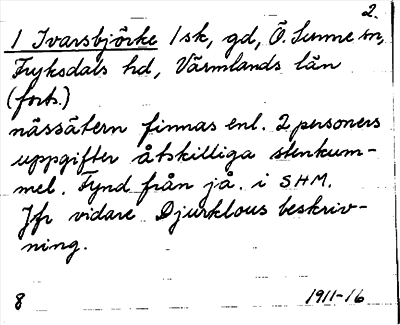 2.
1 Ivarsbjörke 1sk, gd, Ö. Sunne sn,
Fryksdals hd, Värmlands län
(forts.)
nässätern finnas enl. 2 personers
uppgifter åtskilliga stenkum-
mel. Fynd från jå. i SHM.
Jfr vidare Djurklous beskriv-
ning.
8 1911-16